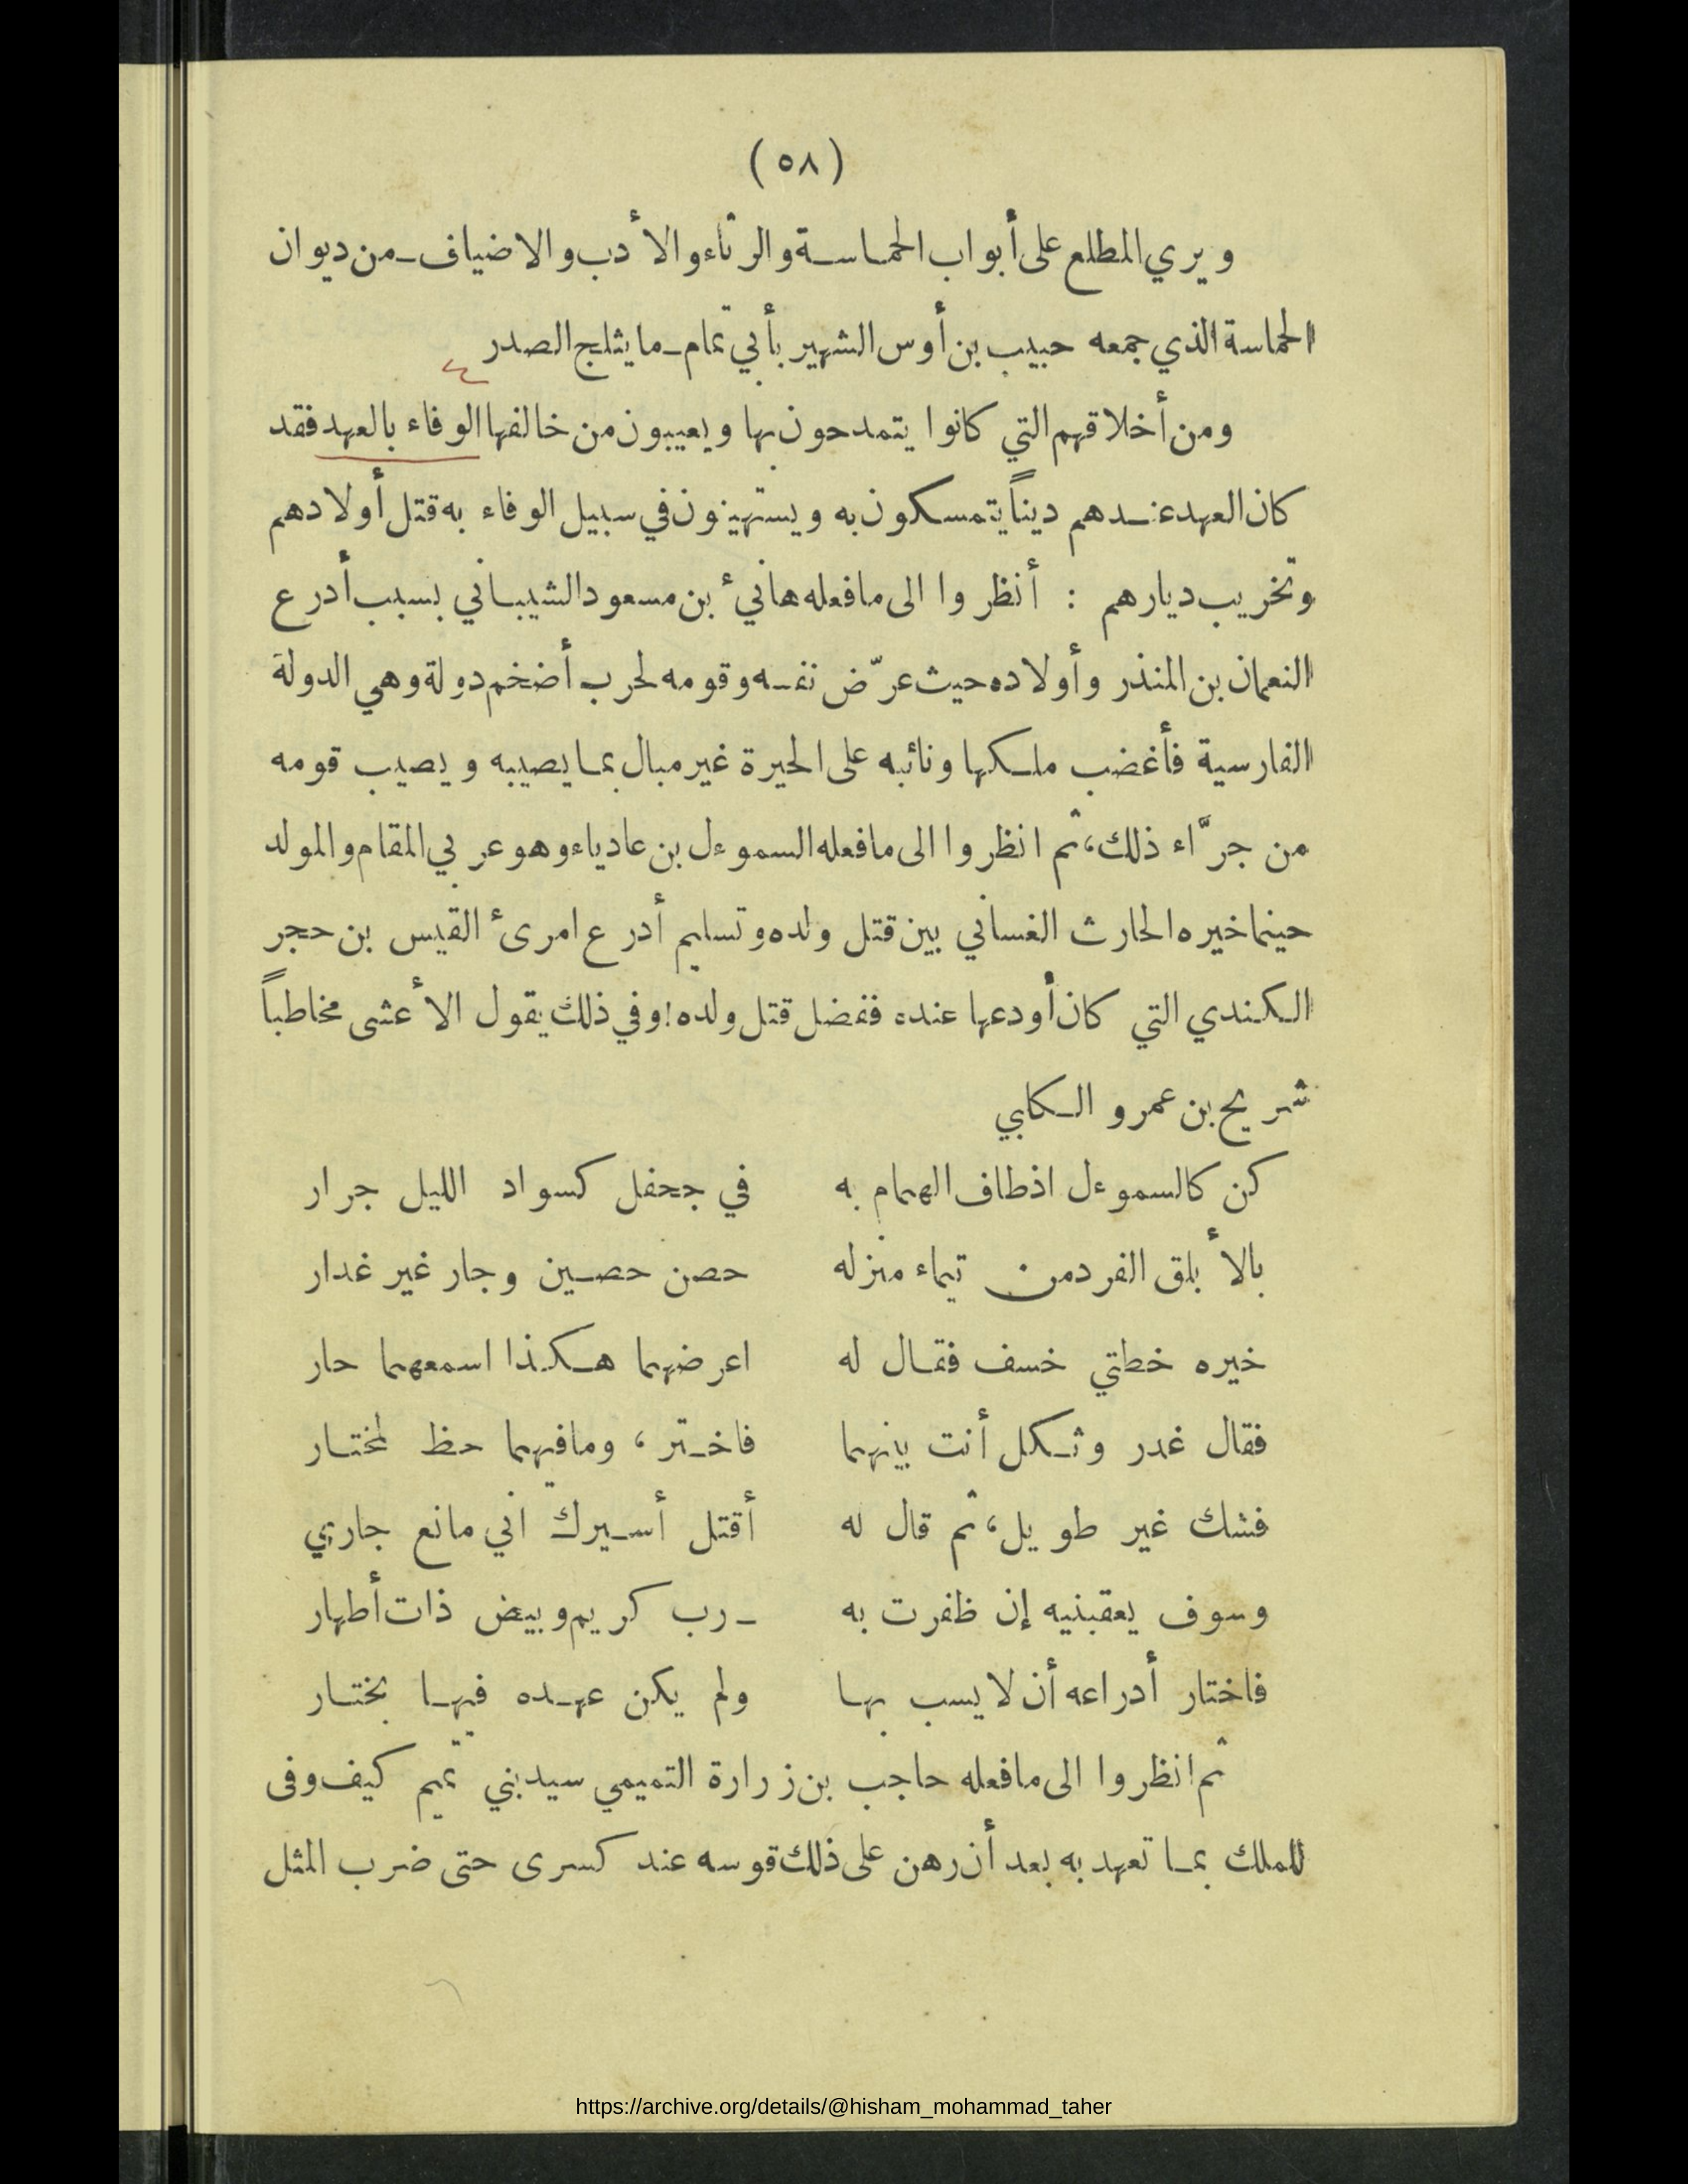 (٥٨)
ويري المطلع على أبواب الحماسة والرثاء والأدب والاضياف ـ من ديوان
الحماسة الذي جمعه حبيب بن أوس الشهير بأبي تمام ـ ما يثلج الصدر
ومن أخلاقهم التي كانوا يتمدحون بها ويعيبون من خالفها الوفاء بالعهد فقد
كان العهد عندهم ديناً يتمسكون به ويستهينون في سبيل الوفاء به قتل أولادهم
وتخريب ديارهم : أنظروا الى ما فعله هانيء بن مسعود الشيباني بسبب أدرع
النعمان بن المنذر وأولاده حيث عرّض نفسه وقومه لحرب أضخم دولة وهي الدولة
الفارسية فأغضب ملكها ونائبه على الحيرة غير مبال بما يصيبه ويصيب قومه
من جرَّاء ذلك، ثم انظروا الى ما فعله السموءل بن عادياء وهو عربي المقام والمولد
حينما خيره الحارث الغساني بين قتل ولده وتسليم أدرع امرىء القيس بن حجر
الكندي التي كان أودعها عنده ففضل قتل ولده! وفي ذلك يقول الأعشى مخاطباً
شريح بن عمرو الكلبي
كن كالسموءل اذ طاف الهمام به في جحفل كسواد الليل جرار
بالأبلق الفرد من تيماء منزله حصن حصين وجار غير غدار
خيره خطتي خسف فقال له اعرضهما هكذا اسمعهما حار
فقال غدر وثكل أنت بينهما فاختر ، وما فيهما حظ لمختار
فشك غير طويل، ثم قال له أقتل أسيرك اني مانع جاري
وسوف يعقبنيه إن ظفرت به ـ رب كريم وبيض ذات أطهار
فاختار أدراعه أن لا يسب بها ولم يكن عهده فيها بختار
ثم انظروا الى ما فعله حاجب بن زرارة التميمي سيد بني تميم كيف وفى
للملك بما تعهد به بعد أن رهن على ذلك قوسه عند كسرى حتى ضرب المثل
https://archive.org/details/@hisham_mohammad_taher